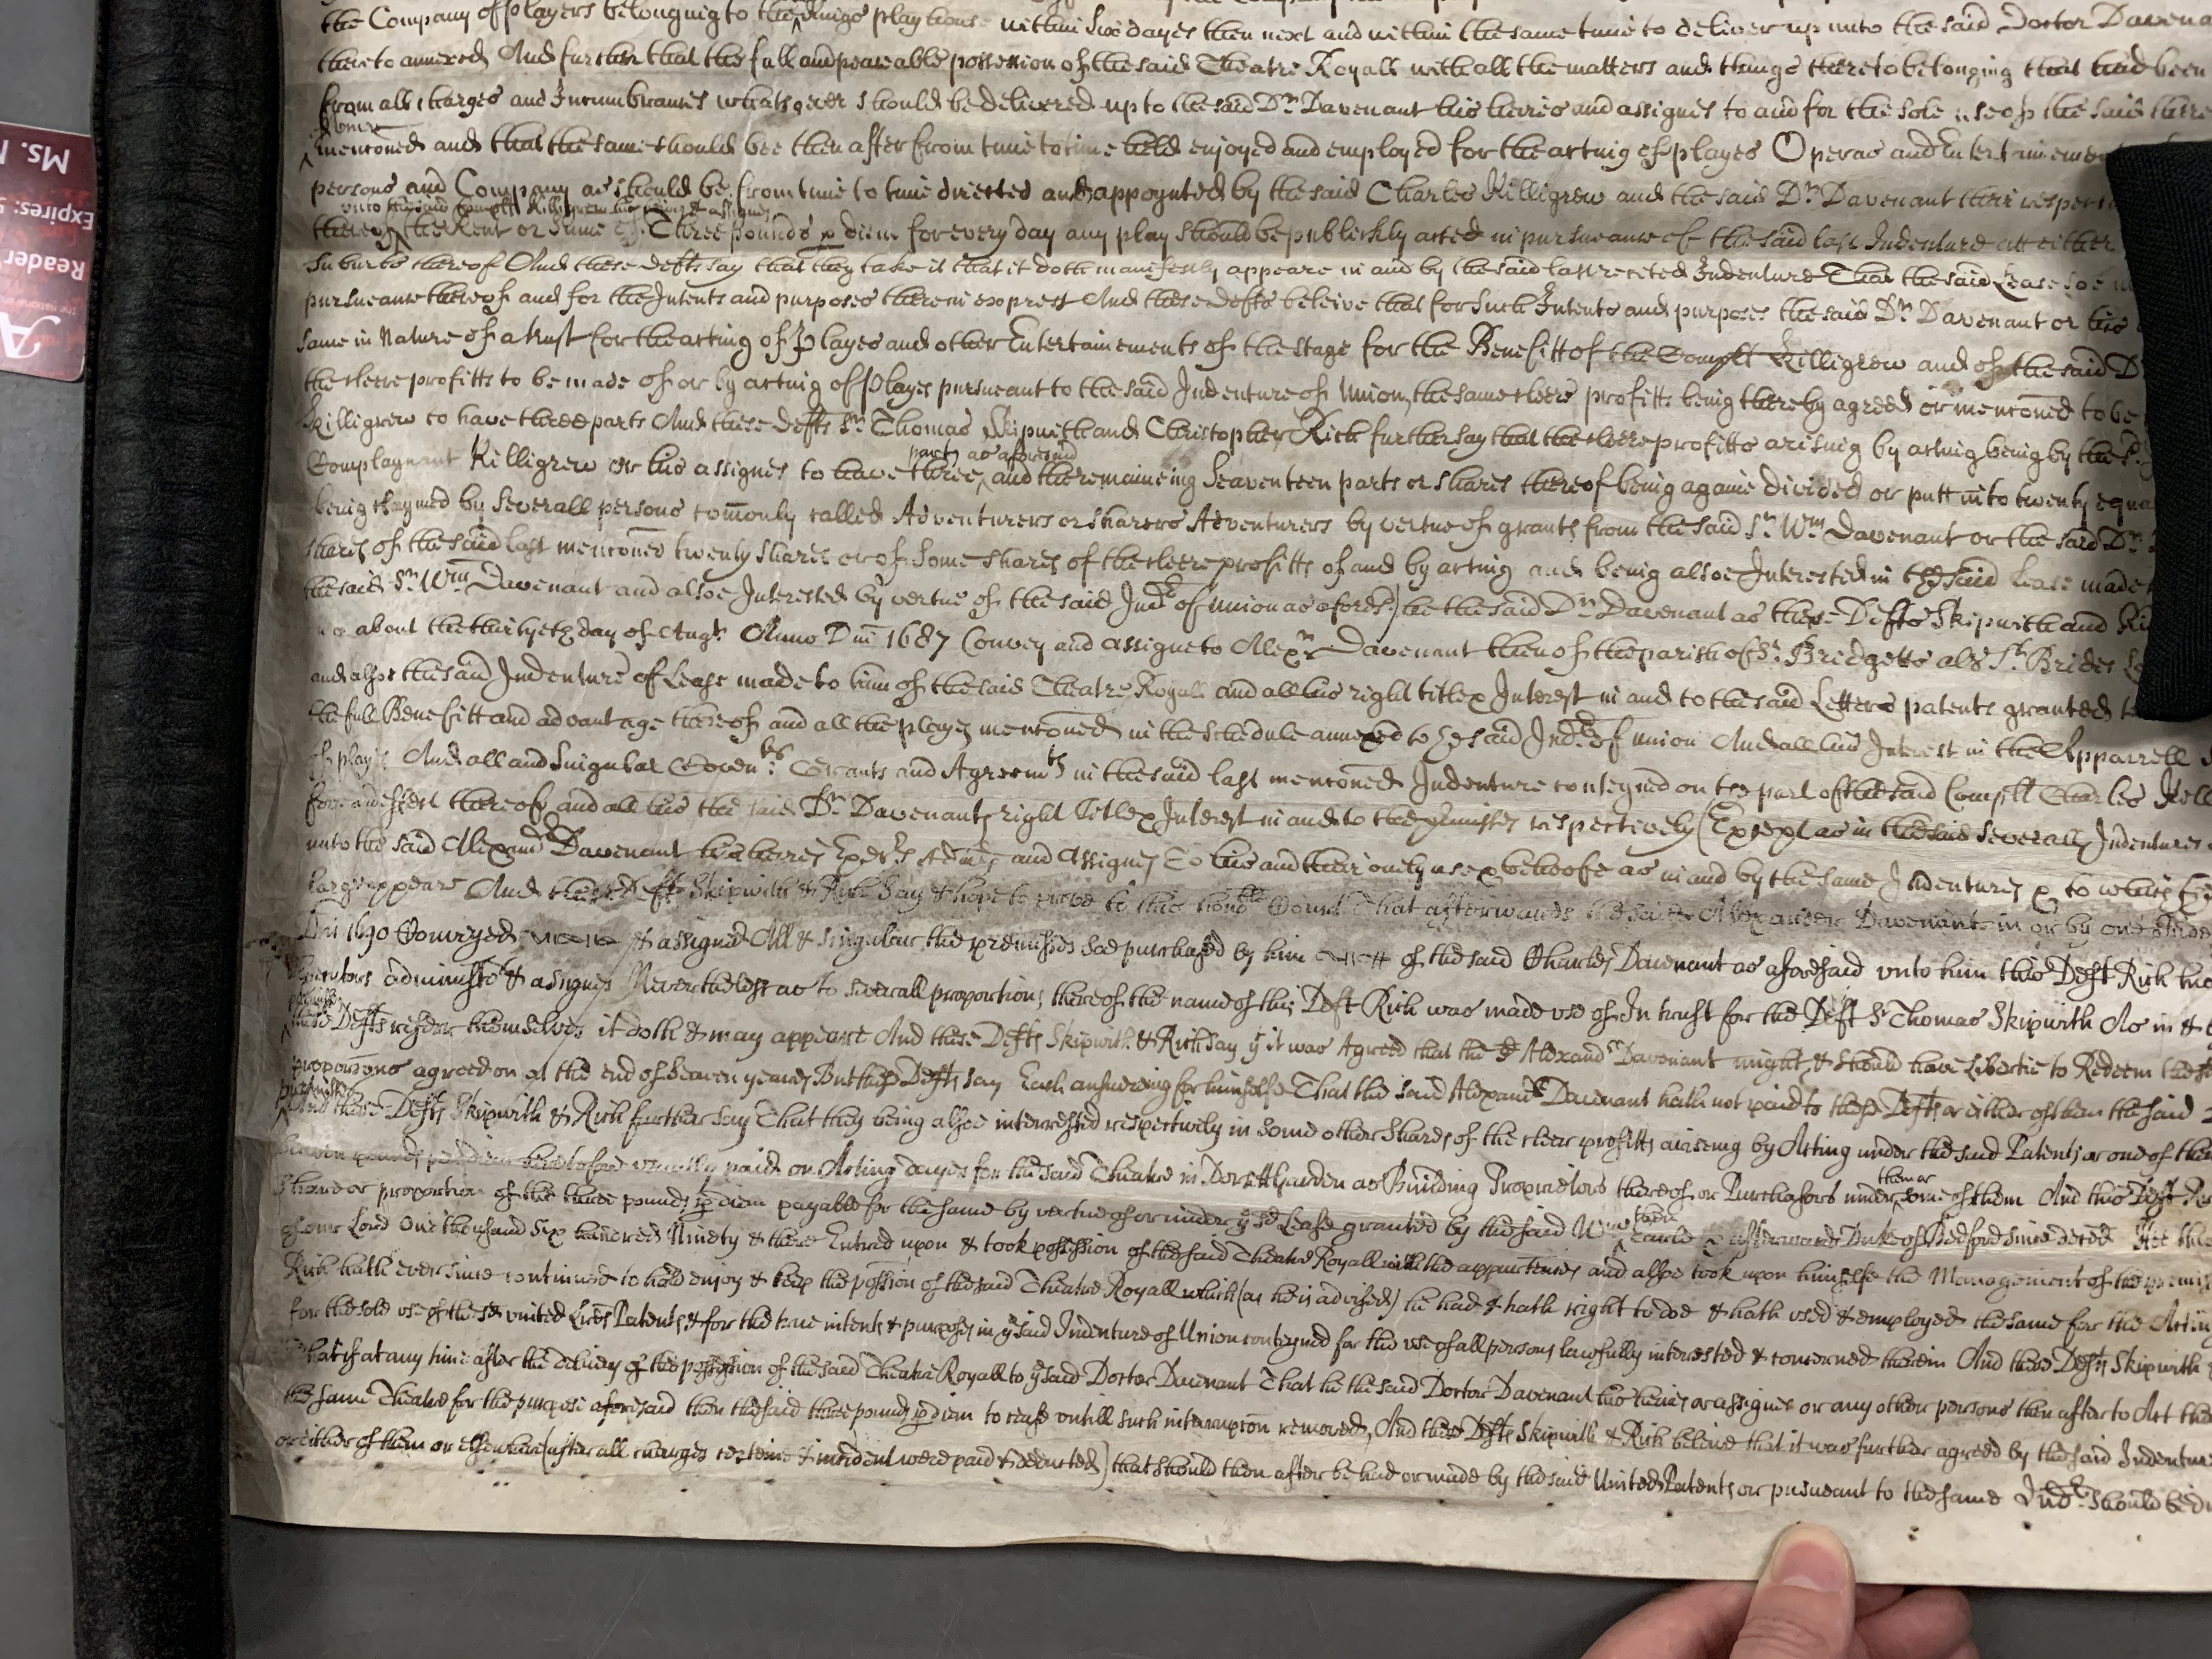 the Company of players belonging to the Kings play house within Six dayes then next and within the same time to deliver up unto the said Doctor Davena
thereto annexed And further that the full and peaceable possession of the said Theatre Royall with all the matters and things thereto belonging that had been
from all charges and Incumbrances whatsoever should be delivered up to the said Dr. Davenant his heires and assignes to and for the sole use of the said
mentioned and that the same should bee then after from time to time held enjoyed and employed for the acting of playes Operas and Entertainement
persons and Company as should be from time to time directed and appoynted by the said Charles Killigrew and the said Dr. Davenant their respect
unto the said Complt Killigrew his heires & assignes
thereof the Rent or sume of Three pounds p diem for every day any play should be publickly acted in pursueance of the said last Indenture att either
Suburbs thereof And these Defts say that they take it that it doth manifestly appeare in and by the said last recited Indenture That the said Lease soe
pursueance thereof and for the Intents and purposes therein exprest And these Defts beleive that for such Intents and purposes the said Dr. Davenant or his
same in Nature of a trust for the acting of Playes and other Entertainements of the stage for the Benefitt of the Complt Killigrew and of the said D
the cleere profitts to be made of or by acting of Playes pursueant to the said Indenture of Union, the same cleere profitts being thereby agreed or mentioned to be
Killigrew to have three parts And these Defts Sr. Thomas Skipwith and Christopher Rich further say that the cleere profitts arising by acting being by the
parts as aforesaid
Complaynant Killigrew or his assignes to have three and the remaineing Seaventeen parts or shares thereof being againe divided or putt into twenty equa
being claymed by severall persons comonly called Adventurers or sharers Adventurers by vertue of grants from the said Sr. Wm. Davenant or the said Dr.
shares of the said last mentioned twenty shares or of some shares of the cleere profitts of and by acting and being alsoe Interested in the said Lease made
the said Sr. Wm. Davenant and alsoe Interested by vertue of the said Indre of Union as aforesd) he the said Dr. Davenant as these Defts Skipwith and Ri
about the thirtyeth day of Augt. Anno Dni 1687 Convey and assigne to Alexr Davenant then of the parish of St. Bridgetts als St. Brides
and alsoe the said Indenture of Lease made to him of the said Theatre Royall and all his right title & Interest in and to the said Letters patents granted
the full Benefitt and advantage thereof and all the playes mentioned in the Schedule annexed to the said Indre of Union And all his Interest in the Apparrell
of playes And all and Singular Covents Grants and Agreemts in the said last mentioned Indenture conteyned on the part of the said Complt Charles Kill
thereof and all his the said Dr. Davenants right Title & Interest in and to the premisses respectively (Except as in the said severall Indentures
unto the said Alexandr Davenant his heires Exers Admrs and Assignes To his and their onely use & behoofe as in and by the same Indentures
large appeare And these Defts Skipwith & Rich say & hope to prove to this honoble Court That afterwards the said Alexander Davenant in or by one Inde
Dni 1690 Conveyed & assigned All & singular the premisses soe purchased by him of the said Charles Davenant as aforesaid unto him this Deft Rich his
administrs & assignes Neverthelesse as to severall proportions thereof the name of this Deft Rich was made use of In trust for the Deft Sr Thomas Skipwith As in &
these Defts referr themselves it doth & may appeare And these Defts Skipwith & Rich say yt it was Agreed that the sd Alexandr Davenant might & should have Libertie to Redeem the
proporcons agreed on at the end of Seaven yeares But these Defts say Each answering for himselfe That the said Alexandr Davenant hath not paid to these Defts or either of them the said
And these Defts Skipwith & Rich further say That they being alsoe interressed respectively in some other Shares of the cleer profitts ariseing by Acting under the said Patents or one of them
heretofore usually paid on Acting dayes for the said Theatre in Dorsett Garden as Building Proprietors thereof or Purchasors under
them or
some of them And this Deft
share or proportion of the three pounds p diem payable for the same by vertue of or under ye sd Lease granted by the said
then
Earle & afterwards Duke of Bedford since deced
of our Lord One thousand Six hundred Ninety & there Entred upon & took possession of the said Theatre Royall with the appurtences and alsoe took upon himselfe the Management of the
Rich hath ever since continued to hold enjoy & keep the possion of the said Theatre Royall which (as he is advised) he had & hath right to doe & hath used & employed the same for the Actin
for the sole use of the sd united Lres Patents & for the true intents & purposes in ye said Indenture of Union conteyned for the use of all persons lawfully interested & concerned therein And these Defts Skipwith
That if at any time after the delivery of the possession of the said Theatre Royall to ye said Doctor Davenant That he the said Doctor Davenant his heires or assignes or any other persons then after to Act
the same Theatre for the purpose aforesaid then the said three pounds p diem to cease untill such interruption removed, And these Defts Skipwith & Rich beleive that it was further agreed by the said Indentur
or either of them or elsewhere (after all charges certeine & incident were paid & deducted) that should then after be had or made by the said United Patents or pursueant to the same Indre should be
Ms.
Expires:
Reader